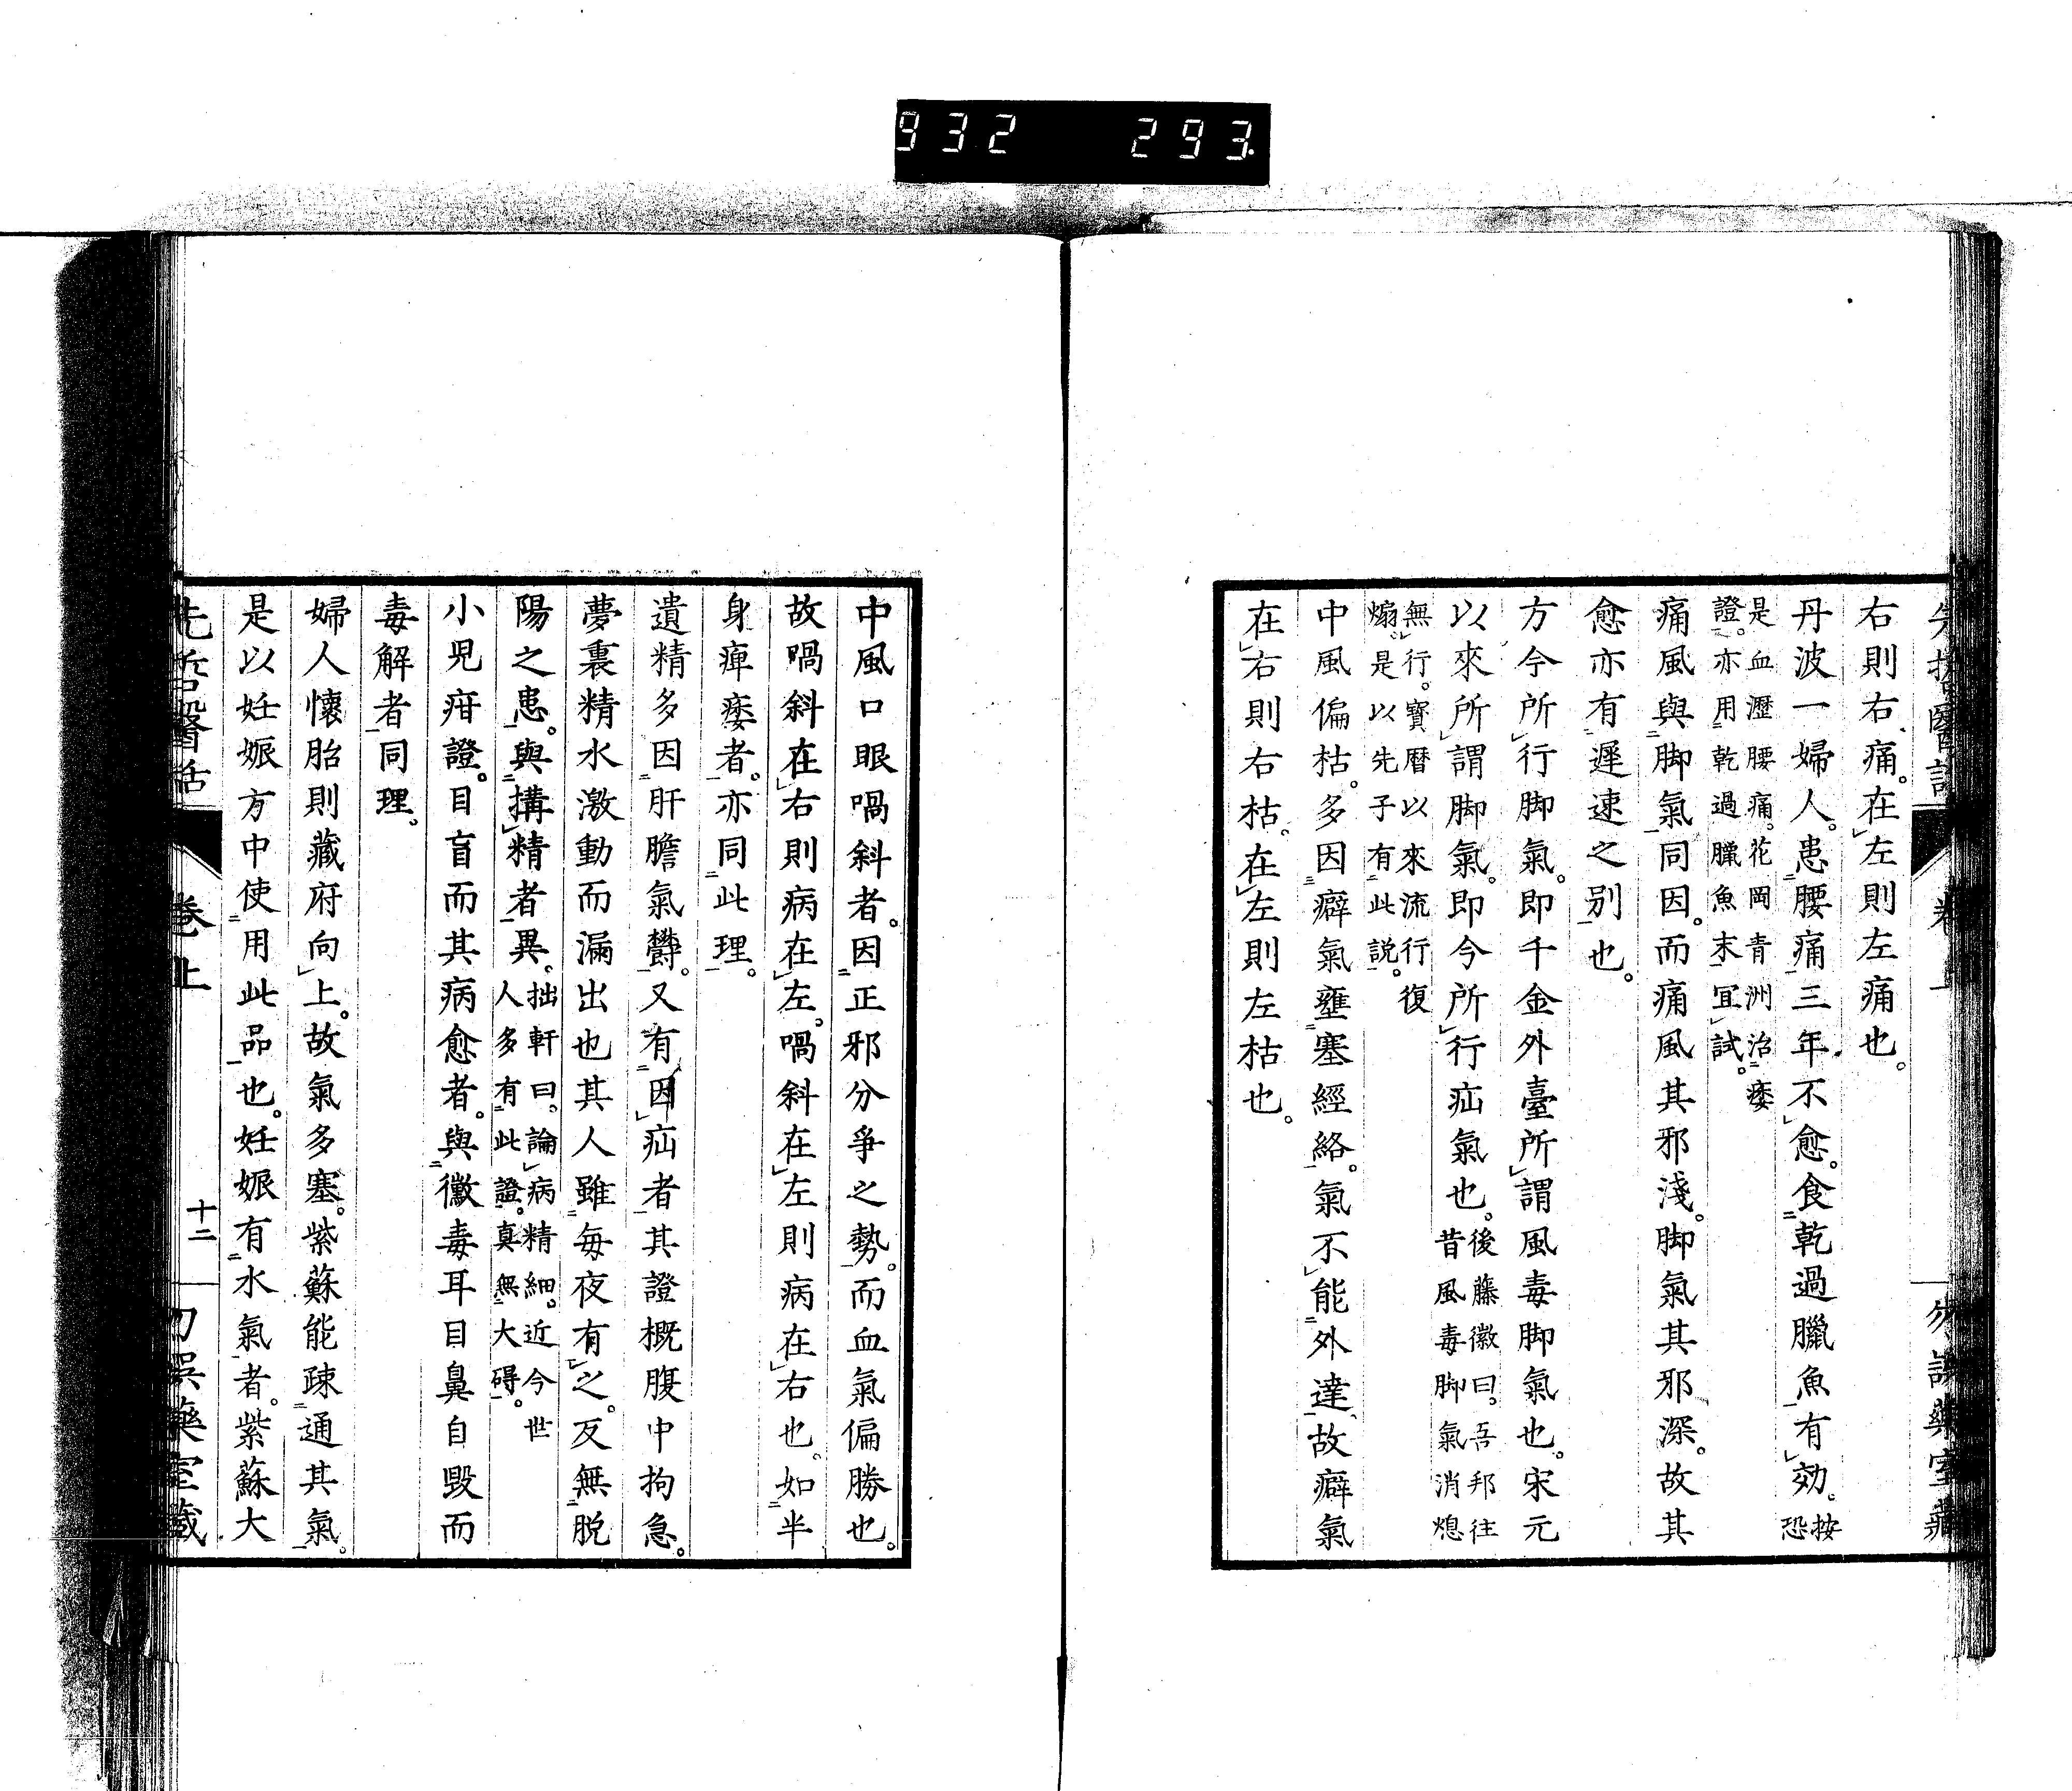 932 293.
右則右痛。在左則左痛也。
丹波一婦人。患腰痛三年。不愈。食乾過臘魚有効。按恐
是血瀝腰痛。花岡青洲治痿
證。亦用乾過臘魚末。宜試。
痛風與脚氣同因。而痛風其邪淺。脚氣其邪深。故其
愈亦有遲速之別也。
方今所行脚氣。即千金外臺所謂風毒脚氣也。宋元
以來所謂脚氣。即今所行疝氣也。後藤徽曰。吾邦往
昔風毒脚氣消熄
無行。寶曆以來流行復
煽。是以先子有此説。
中風偏枯。多因癖氣壅塞經絡。氣不能外達、故癖氣
在右則右枯。在左則左枯也。
中風口眼喎斜者。因正邪分爭之勢。而血氣偏勝也。
故喎斜在右則病在左。喎斜在左則病在右也。如半
身痺痿者。亦同此理。
遺精多因肝膽氣鬱。又有因疝者其證概腹中拘急。
夢裏精水激動而漏出也其人雖毎夜有之。反無脱
陽之患。與搆精者異。拙軒曰。論病精細。近今世
人多有此證。真無大碍。
小兒疳證。目盲而其病愈者。與黴毒耳目鼻自毀而
毒解者同理。
婦人懷胎則藏府向上。故氣多塞。紫蘇能疎通其氣。
是以妊娠方中使用此品也。妊娠有水氣者。紫蘇大
先哲醫話 卷上 十二 勿誤藥室藏